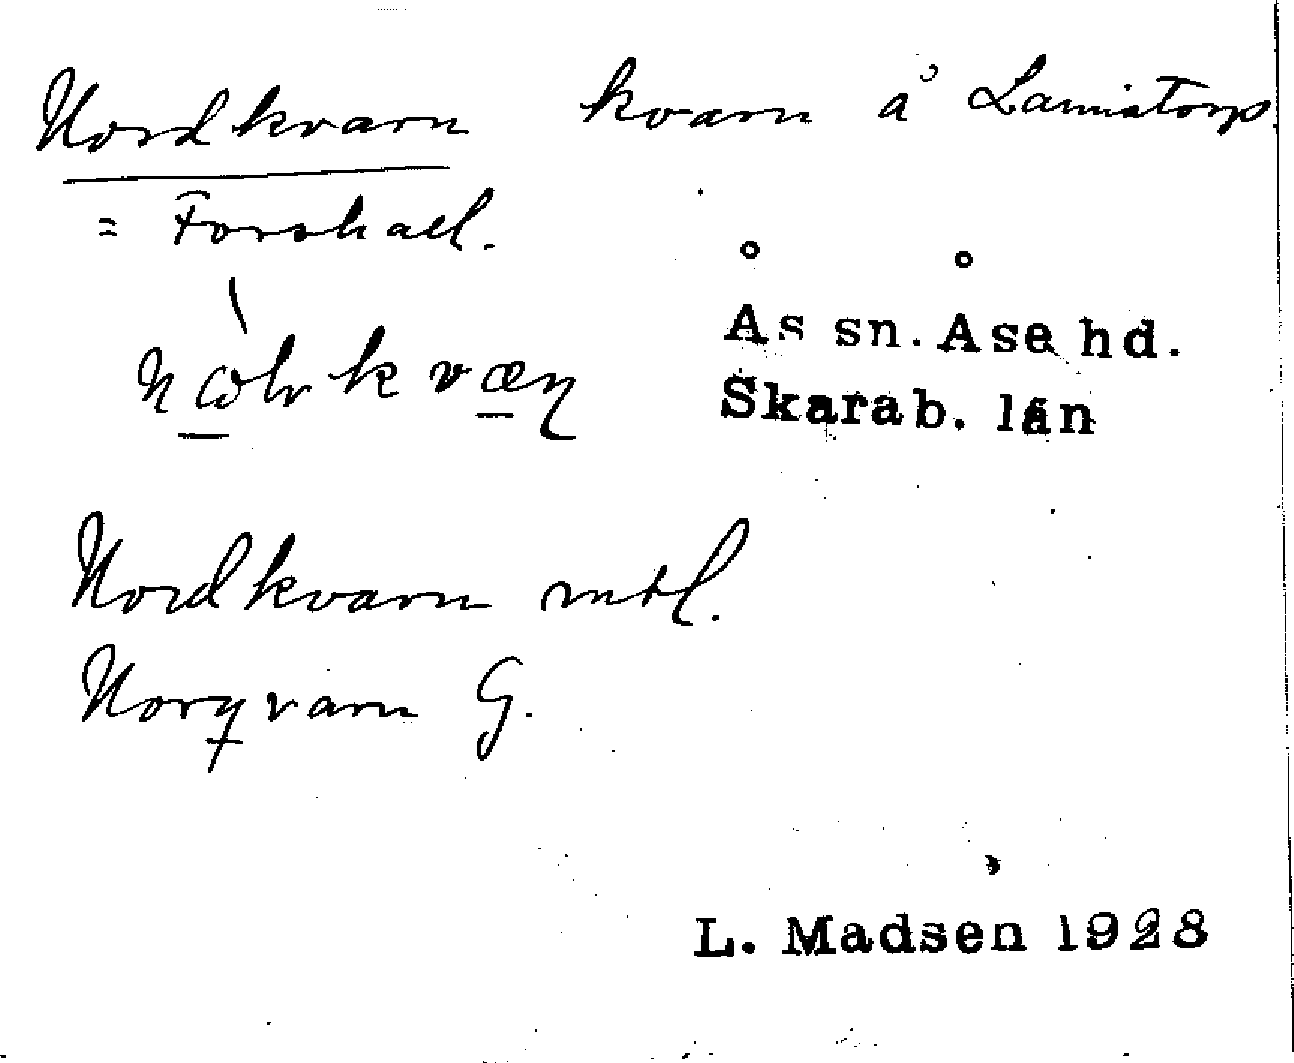 Nordkvarn kvarn å Lamistorp
= Forshall.
Ås sn. Åse hd.
Skarab. län
Nordkvarn mtl.
Norqvarn G.
L. Madsen 1928